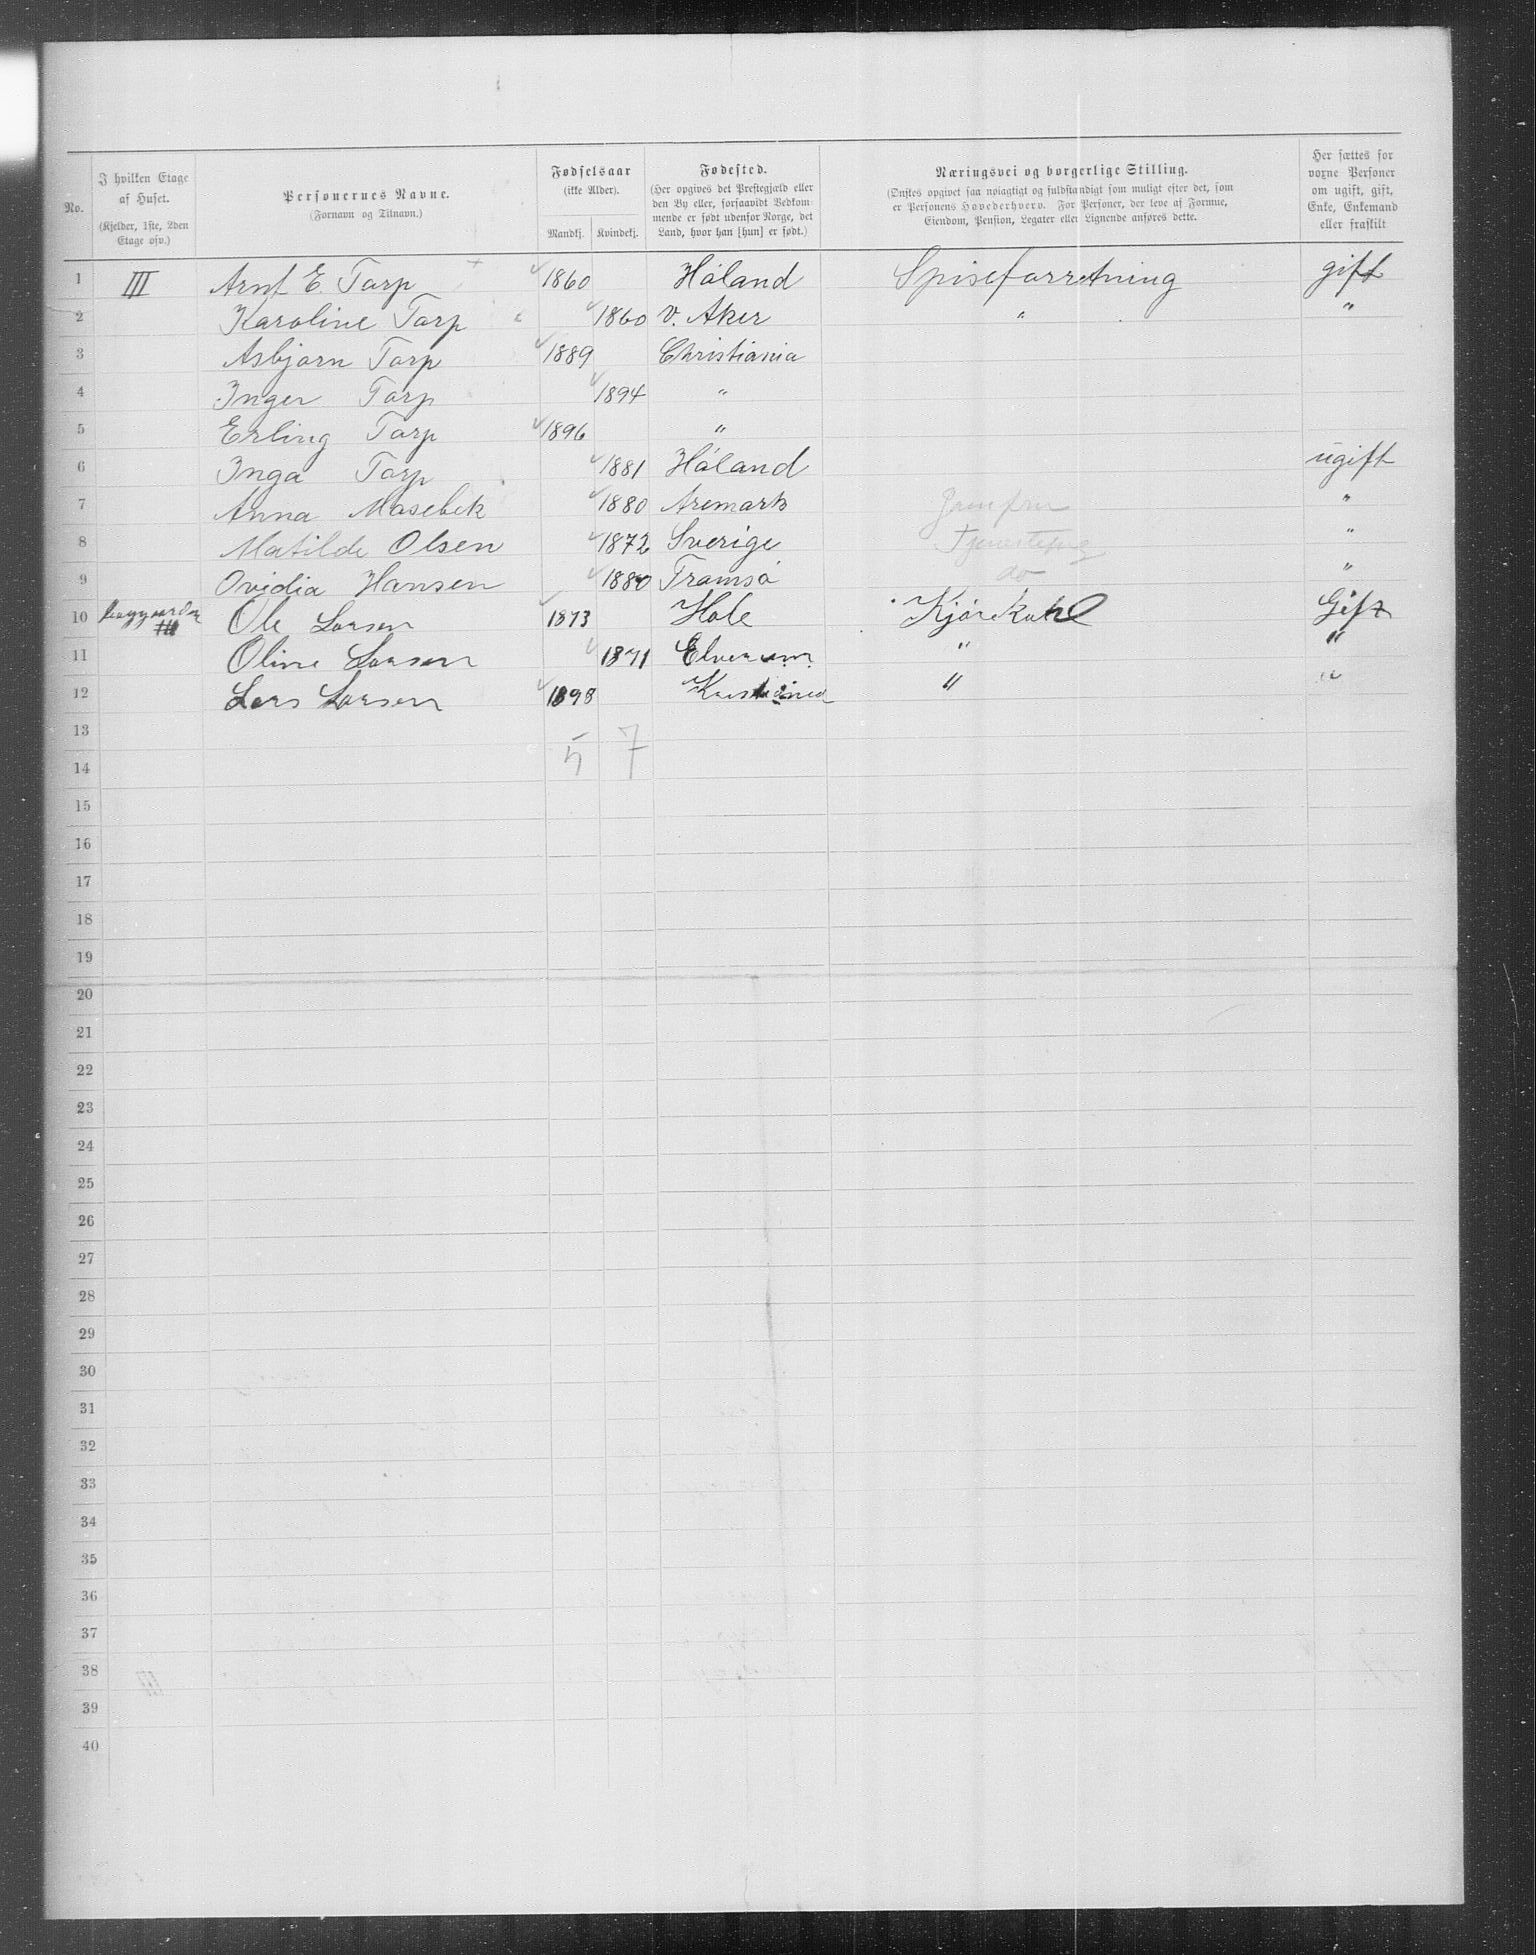 No.
I hvilken Etage af Huset. (Kjelder, 1ste, 2den Etage osv.)
Personernes Navne. (Fornavn og Tilnavn.)
Fødselsaar (ikke Alder). Mandkj. Kvindekj.
Fødested. (Her opgives det Prestegjæld eller den By eller, forsaavidt Vedkommende er født udenfor Norge, det Land, hvor han [hun] er født.)
Næringsvei og borgerlige Stilling. (Ønskes opgivet saa nøiagtigt og fuldstændigt som muligt efter det, som er Personens Hovederhverv. For Personer, der leve af Formue, Eiendom, Pension, Legater eller Lignende anføres dette.)
Her sættes for voxne Personer om ugift, gift, Enke, Enkemand eller fraskilt
1 III Arnt E. Tarp 1860 Høland Spiseforretning gift
2 Karoline Tarp 1860 V. Aker " "
3 Asbjørn Tarp 1889 Christiania
4 Inger Tarp 1894 "
5 Erling Tarp 1896 "
6 Inga Tarp 1881 Høland ugift
7 Anna Masebek 1880 Aremark Jomfru "
8 Matilde Olsen 1872 Sverige Tjenestepige "
9 Ovidia Hansen 1880 Tromsø do "
10 Ole Larsen 1873 Hole Kjørekarl Gift
11 Oline Larsen 1871 Elverum " "
12 Lars Larsen 1898 Kristiania " "
13
5 7
14
15
16
17
18
19
20
21
22
23
24
25
26
27
28
29
30
31
32
33
34
35
36
37
38
39
40